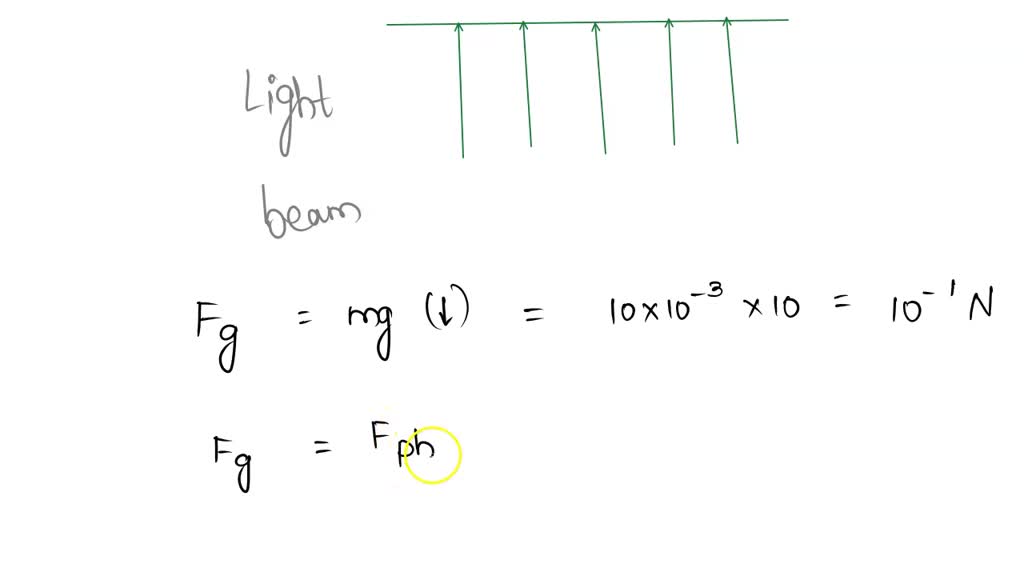 Light
beam
Fg = mg (↓) = 10×10⁻³ ×10 = 10⁻¹ N
Fg = Fph